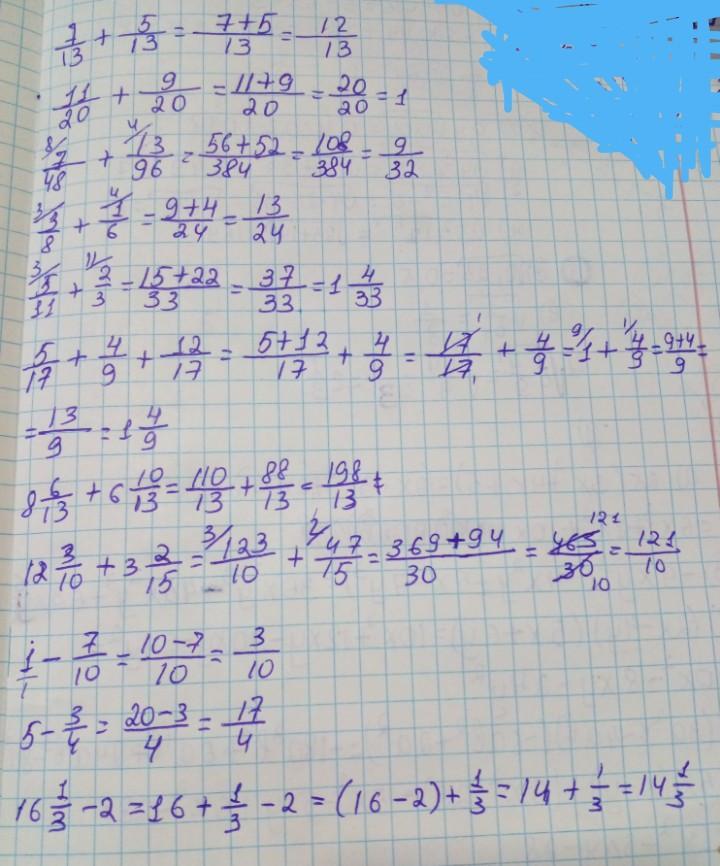 7/13 + 5/13 = 7+5/13 = 12/13
11/20 + 9/20 = 11+9/20 = 20/20 = 1
8/ 7/48 + 4/ 13/96 = 56+52/384 = 108/384 = 9/32
3/ 3/8 + 4/ 1/6 = 9+4/24 = 13/24
3/ 5/11 + 11/ 2/3 = 15+22/33 = 37/33 = 1 4/33
5/17 + 4/9 + 12/17 = 5+12/17 + 4/9 = 17/17 1 1 + 4/9 = 9/ 1 + 1/ 4/9 = 9+4/9 =
= 13/9 = 1 4/9
8 6/13 + 6 10/13 = 110/13 + 88/13 = 198/13
12 3/10 + 3 2/15 = 3/ 123/10 + 2/ 47/15 = 369+94/30 = 463/30 121 10 = 121/10
1/1 - 7/10 = 10-7/10 = 3/10
5 - 3/4 = 20-3/4 = 17/4
16 1/3 - 2 = 16 + 1/3 - 2 = (16 - 2) + 1/3 = 14 + 1/3 = 14 1/3